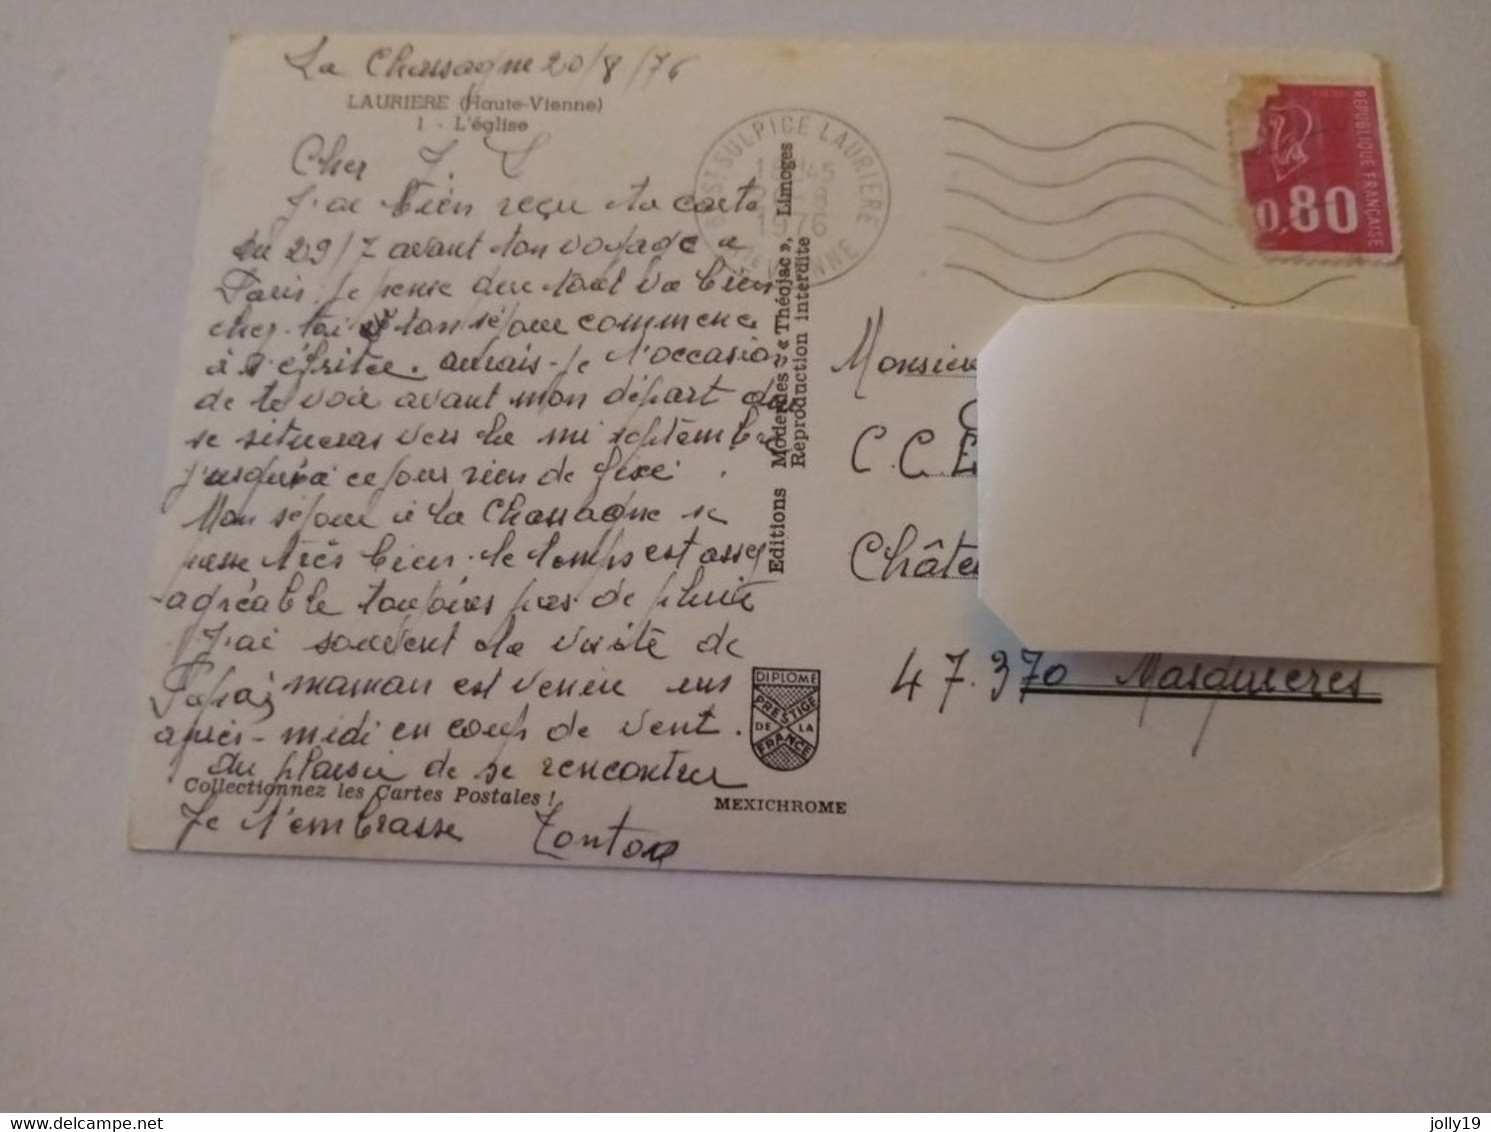 La Chassagne 20/8/76
LAURIERE (Haute-Vienne)
1 - L'église
Cher J. L
J'ai bien reçu ta carte
du 29/7 avant ton voyage a
Paris. Je pense que tout va bien
cher toi ton séjour commence
à . aurais-je l'occasion
de te voir avant mon départ
se situeras vers la mi septembre
jusqu'à ce jour rien de fixé.
Mon séjour à La Chassagne se
passe très bien. le temps est assez
agréable toujours pas de pluie
J'ai souvent la visite de
Papa, maman est venue un
après-midi en coup de vent.
Au plaisir de se rencontrer
Collectionnez les Cartes Postales !
Je t'embrasse Tonton
ST SULPICE LAURIERE
1976
VIENNE
Editions Modernes « Théojac », Limoges
Reproduction interdite
DIPLOME
PRESTIGE
DE LA
FRANCE
MEXICHROME
REPUBLIQUE FRANÇAISE
0,80
Monsieu
C.C.E
Châte
47.370 Masquieres
jolly19